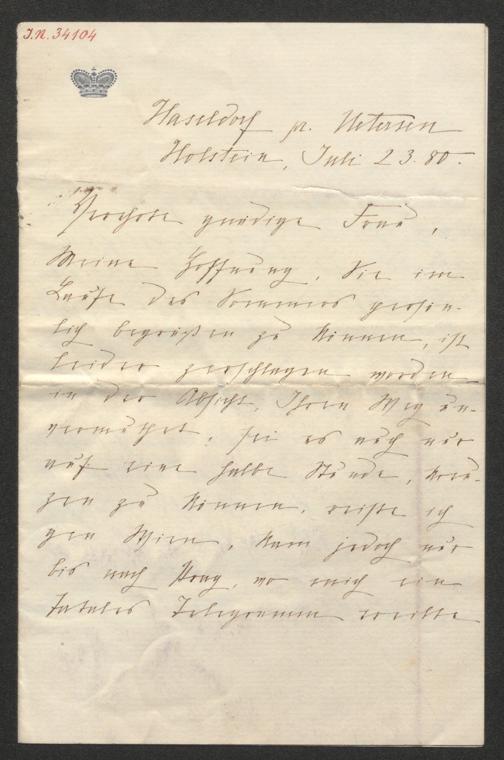 J.N. 34104
Haseldorf pr. Uetersen
Holstein, Juli 23. 80.
Verehrte gnädige Frau,
Meine Hoffnung, Sie im
Laufe des Sommers persön-
lich begrüßen zu können, ist
leider zerschlagen worden
in der Absicht, Ihren Weg un-
vermuthet, sei es auch nur
auf eine halbe Stunde, kreu-
zen zu können, reiste ich
gen Wien, kam jedoch nur
bis nach Prag, wo mich ein
fatales Telegramm ereilte